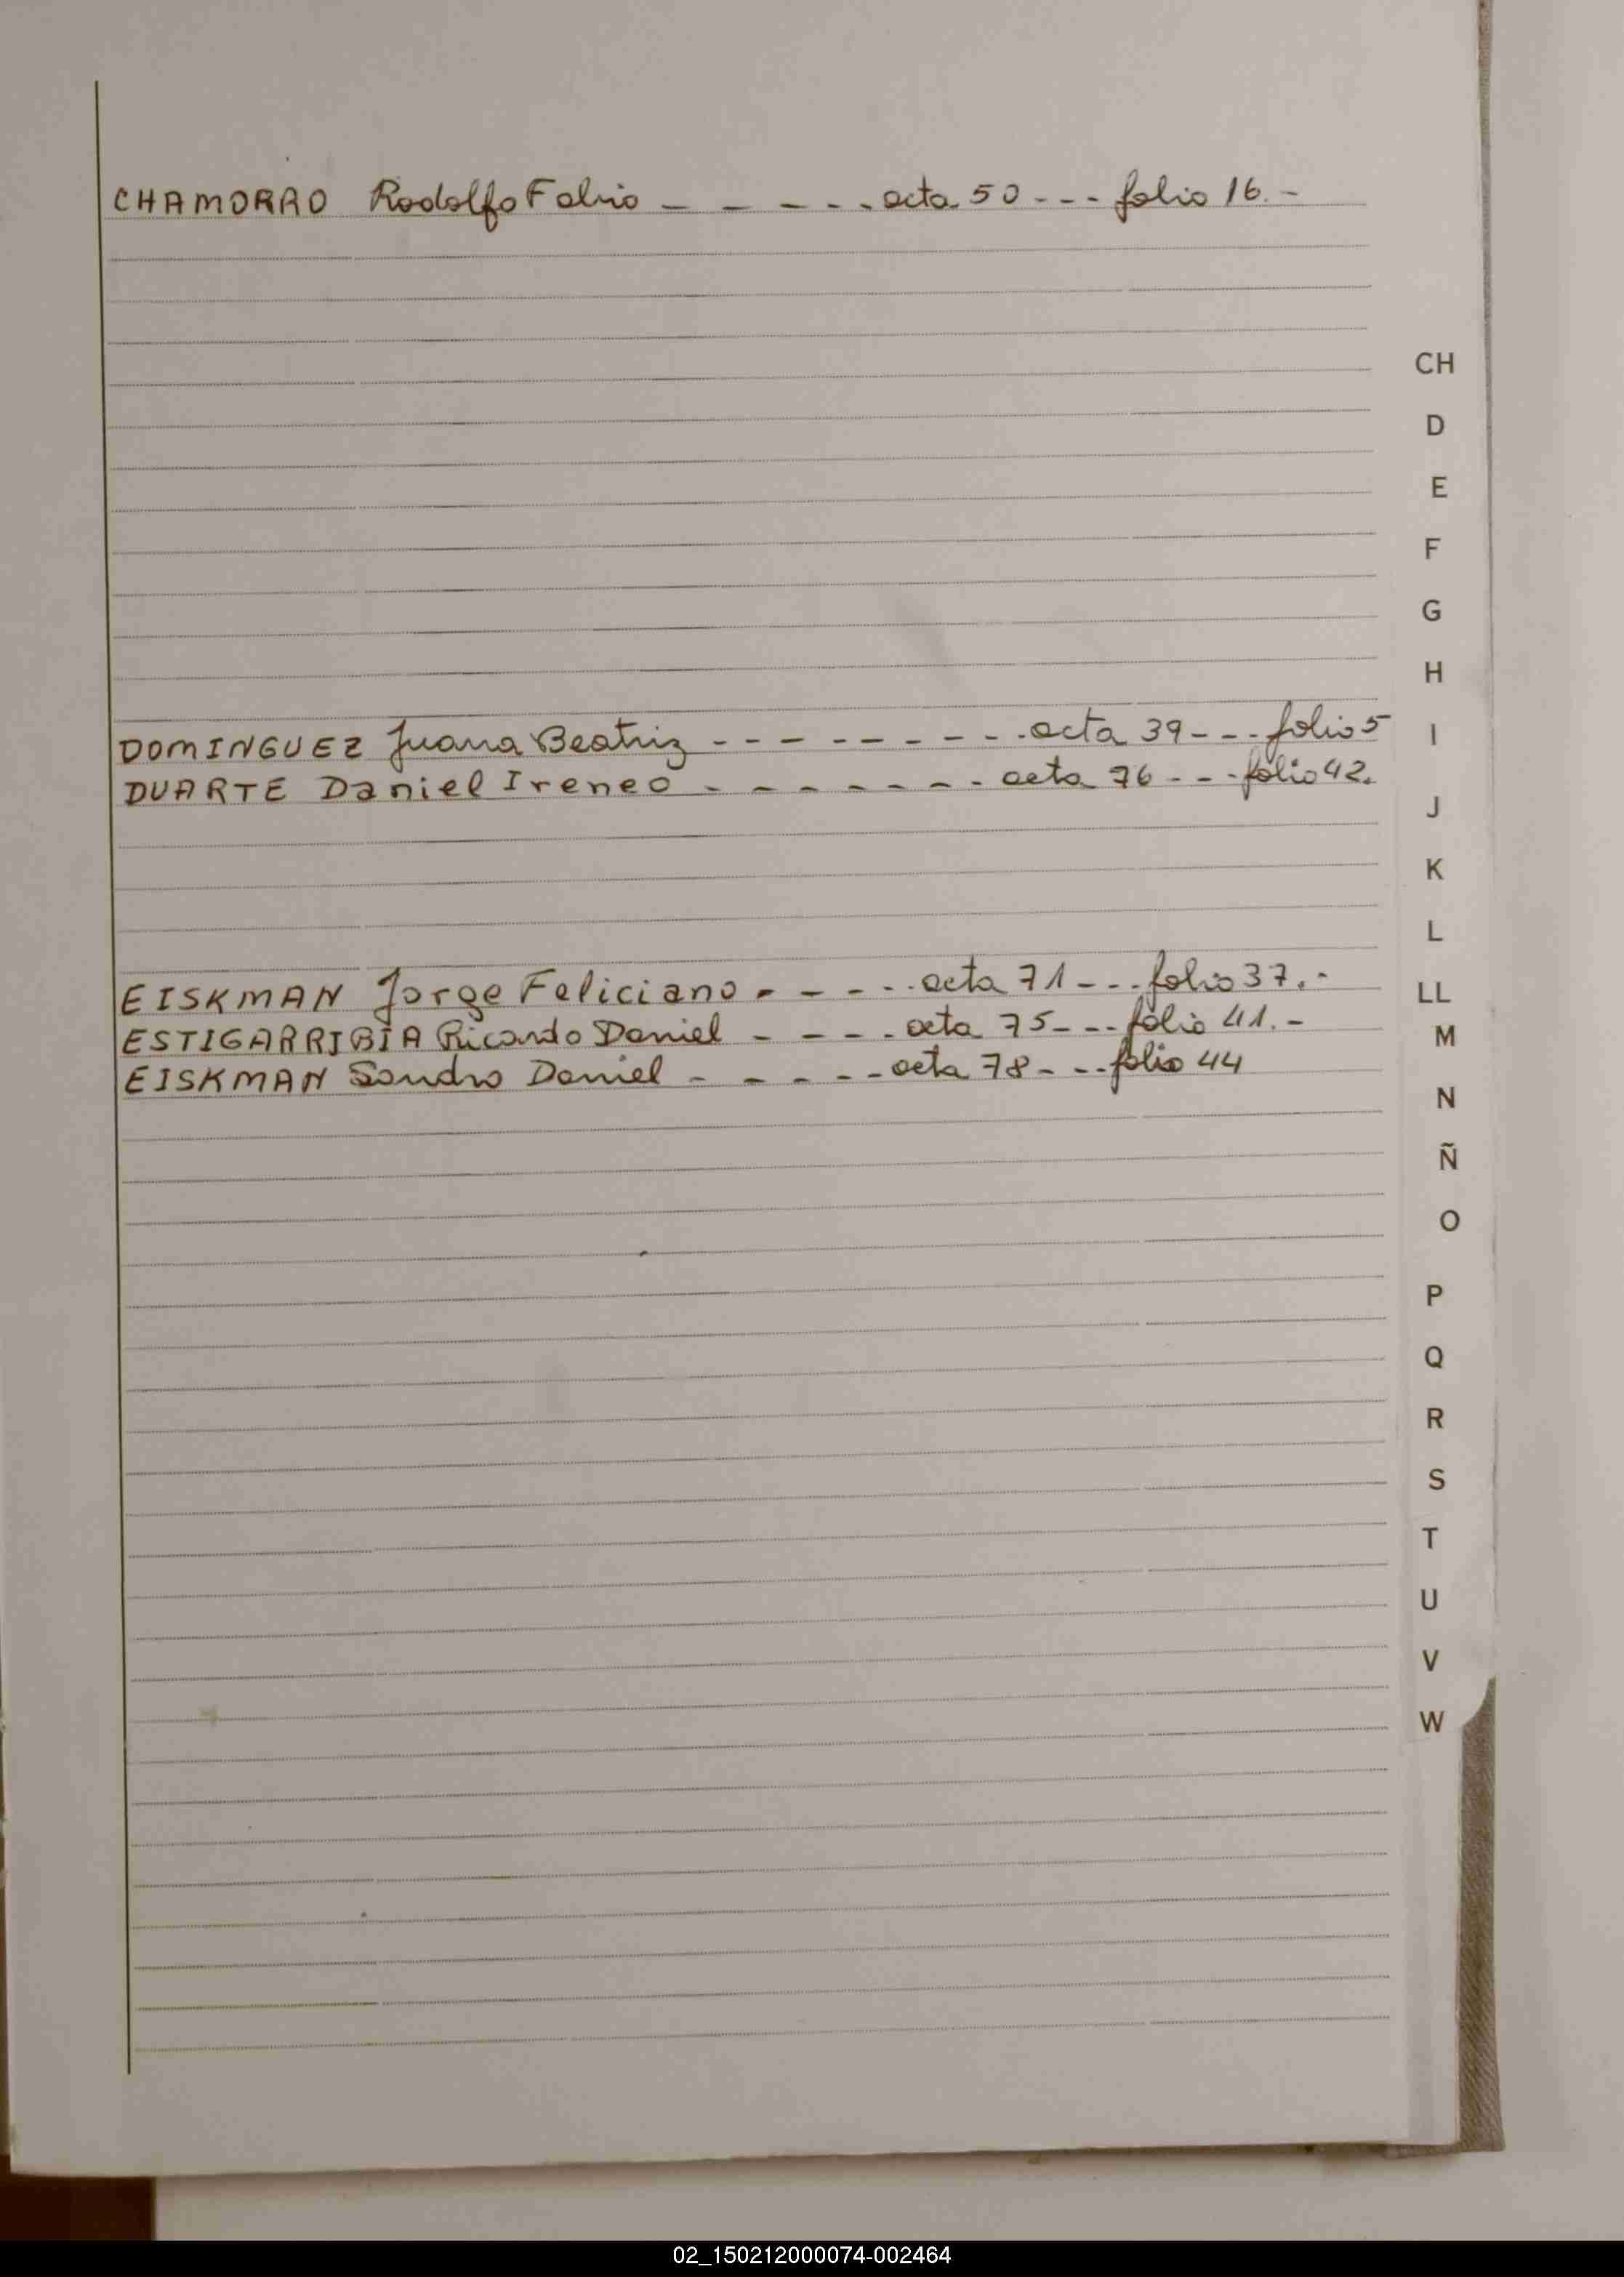 CHAMORRO Rodolfo Fabio - - - - - acta 50 - - - folio 16.-
CH
D
E
F
G
H
DOMINGUEZ Juana Beatriz - - - - - - - - - acta 39 - - - folio 5
I
DUARTE Daniel Ireneo - - - - - - - acta 76 - - - folio 42.
J
K
L
EISKMAN Jorge Feliciano - - - - - acta 71 - - - folio 37.-
LL
ESTIGARRIBIA Ricardo Daniel - - - - acta 75 - - - folio 41.-
M
EISKMAN Sandro Daniel - - - - - acta 78 - - - folio 44
N
Ñ
O
P
Q
R
S
T
U
V
W
02_150212000074-002464